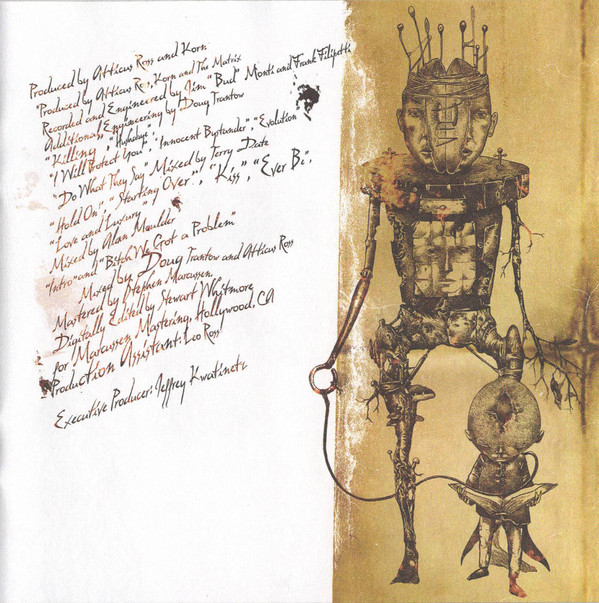 Produced by Atticus Ross and Korn
*Produced by Atticus Ross, Korn and The Matrix
Recorded and Engineered by Jim "Bud" Monti and Frank Filipetti
Additional Engineering by Doug Trantow
"Killing", "Hushabye",
"I Will Protect You", "Innocent Bystander", "Evolution"
"Do What They Say" Mixed by Terry Date
"Hold On", "Starting Over", "Kiss", "Ever Be",
"Love and Luxury"
Mixed by Alan Moulder
"Intro" and "Bitch We Got a Problem"
Mixed by Doug Trantow and Atticus Ross
Mastered by Stephen Marcussen
Digitally Edited by Stewart Whitmore
for Marcussen Mastering, Hollywood, CA
Production Assistant: Leo Ross
Executive Producer: Jeffrey Kwatinetz